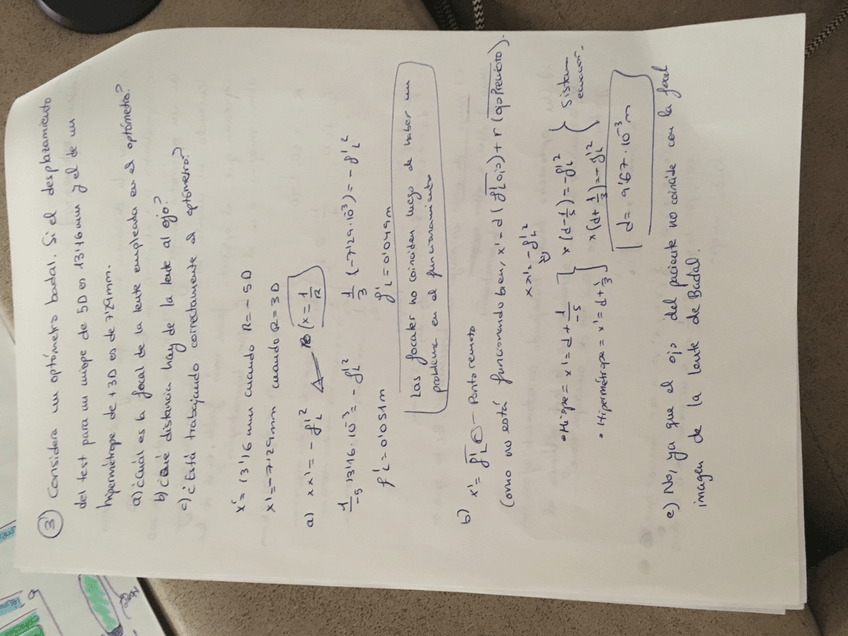 ③ Considera un optómetro badal. Si el desplazamiento
del test para un miope de 5D es 13'16 mm y el de un
hipermétrope de +3D es de 7'29mm.
a) ¿Cuál es la focal de la lente empleada en el optómetro?
b) ¿Qué distancia hay de la lente al ojo?
c) ¿Está trabajando correctamente el optómetro?
x' = 13'16 mm cuando R = -5D
x' = -7'29 mm cuando R = 3D
a) xx' = -f'L² (x = 1/R)
1/-5 · 13'16 · 10⁻³ = -f'L²
f'L = 0'051m
1/3 (-7'29 · 10⁻³) = -f'L²
f'L = 0'049m
Las focales no coinciden luego de haber un
problema en el funcionamiento
b) x' = f'L - Punto remoto
Como no está funcionando bien, x' = d (f'L ojo) + r (ojo Premoto).
xx'L = -f'L²
• Miope = x' = d + 1/-5
• Hipermétrope = x' = d + 1/3
x (d - 1/5) = -f'L²
x (d + 1/3) = -f'L²
Sistema
d = 9'67 · 10⁻³ m
c) No, ya que el ojo del paciente no coincide con la focal
imagen de la lente de Badal.